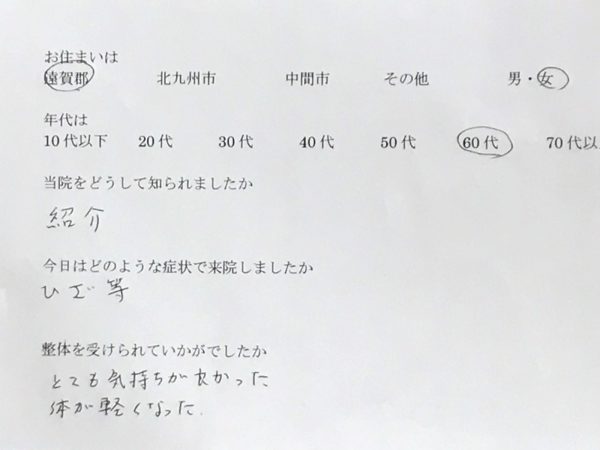 お住まいは
遠賀郡 北九州市 中間市 その他 男・女
年代は
10代以下 20代 30代 40代 50代 60代 70代以
当院をどうして知られましたか
紹介
今日はどのような症状で来院しましたか
ひざ等
整体を受けられていかがでしたか
とても気持ちが良かった
体が軽くなった.